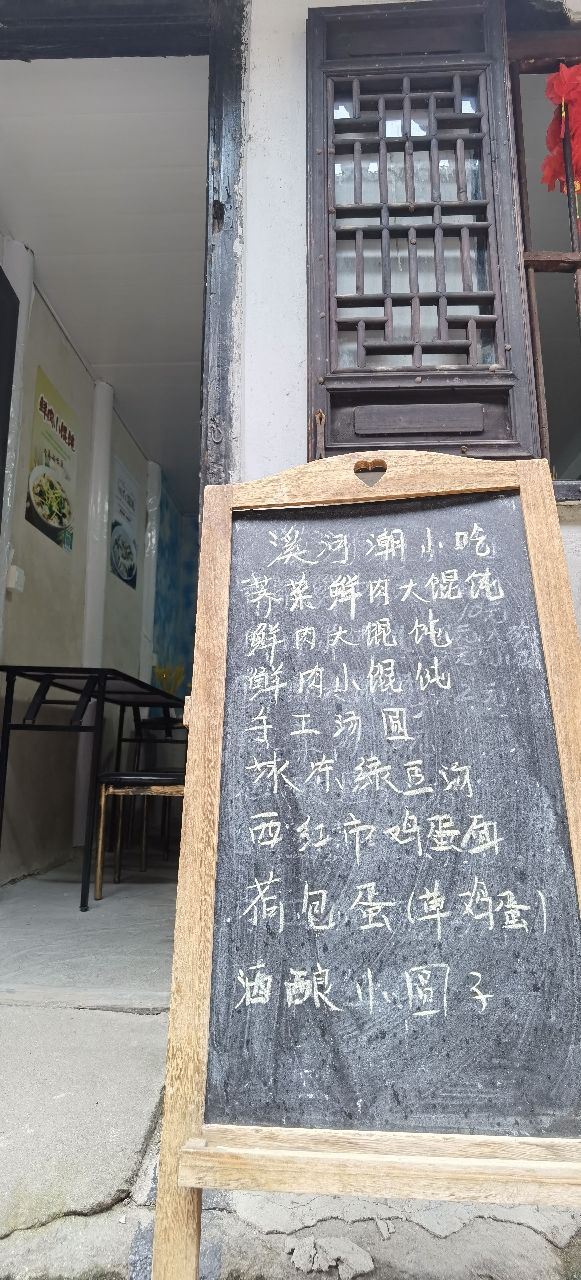 鲜肉小馄饨
溪河潮小吃
荠菜鲜肉大馄饨
鲜肉大馄饨
鲜肉小馄饨
手工汤圆
冰冻绿豆汤
西红市鸡蛋面
荷包蛋(草鸡蛋)
酒酿小圆子